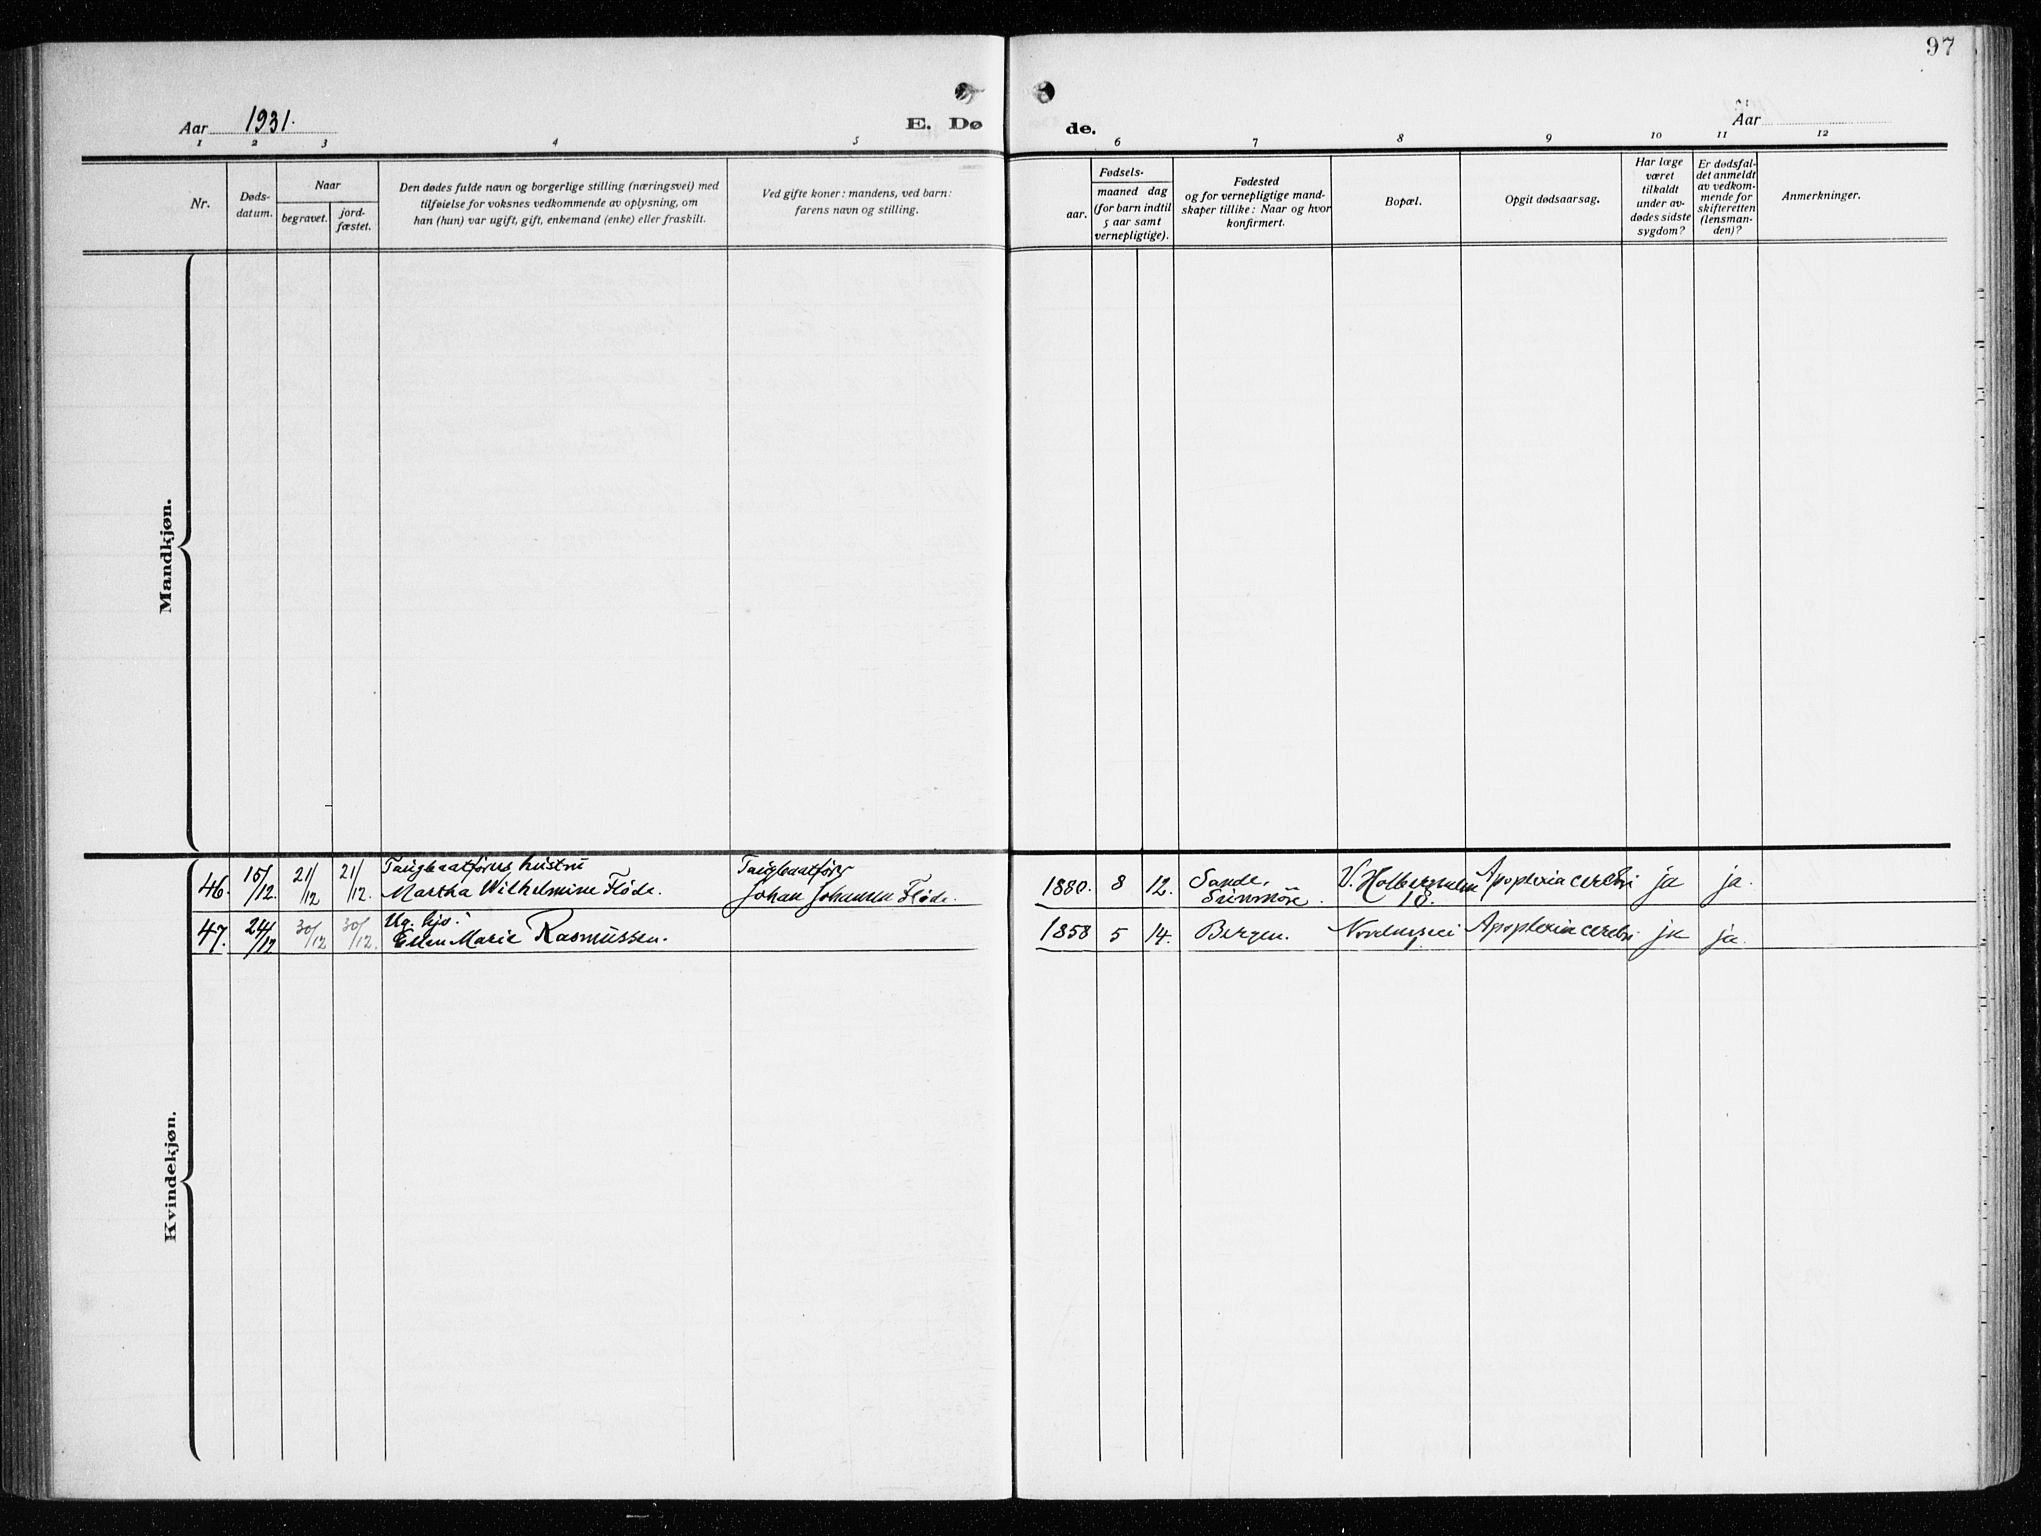 97
Aar 1931.
E. Dø
de.
Aar
1 2 3 4 5
6 7 8 9 10 11 12
Nr.
Døds-
datum.
Naar
begravet.
jord-
fæstet.
Den dødes fulde navn og borgerlige stilling (næringsvei) med
tilføielse for voksnes vedkommende av oplysning, om
han (hun) var ugift, gift, enkemand (enke) eller fraskilt.
Ved gifte koner: mandens, ved barn:
farens navn og stilling.
Fødsels-
aar.
maaned dag
(for barn indtil
5 aar samt
vernepligtige).
Fødested
og for vernepligtige mand-
skaper tillike: Naar og hvor
konfirmert.
Bopæl.
Opgit dødsaarsag.
Har læge
været
tilkaldt
under av-
dødes sidste
sygdom?
Er dødsfal-
det anmeldt
av vedkom-
mende for
skifteretten
(lensman-
den)?
Anmerkninger.
Mandkjøn.
Kvindekjøn.
46. 15/12. 21/12 21/12.
Taugbaatførers hustru
Martha Wilhelmine Fløde.
Taugbaatfører
Johan Johannsen Fløde.
1880. 8 12.
Sande,
Sunmøre.
V. Holbergsalm
18.
Apoplexia cerebri ja ja.
47. 24/12 30/12 30/12.
Ug. hjo.
Ellen Marie Rasmussen.
1858 5 14. Bergen.
1
Apoplexia cerebri ja ja.